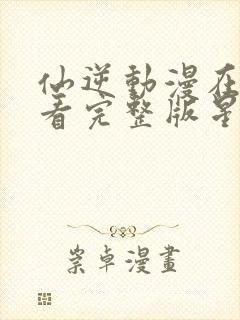 仙逆動漫在
看完整版星
崇卓漫畫